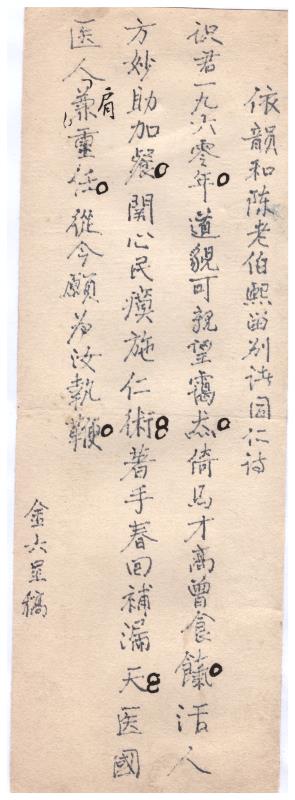 依韻和陈老伯熙留别诸同仁诗
识君一九六零年。道貌可親望靄然。倚馬才高曾食餼。活人
方妙助加餐。関心民瘼施仁術。著手春回補漏天。医國
医人兼肩重任。從今願为汝執鞭。
金六呈稿